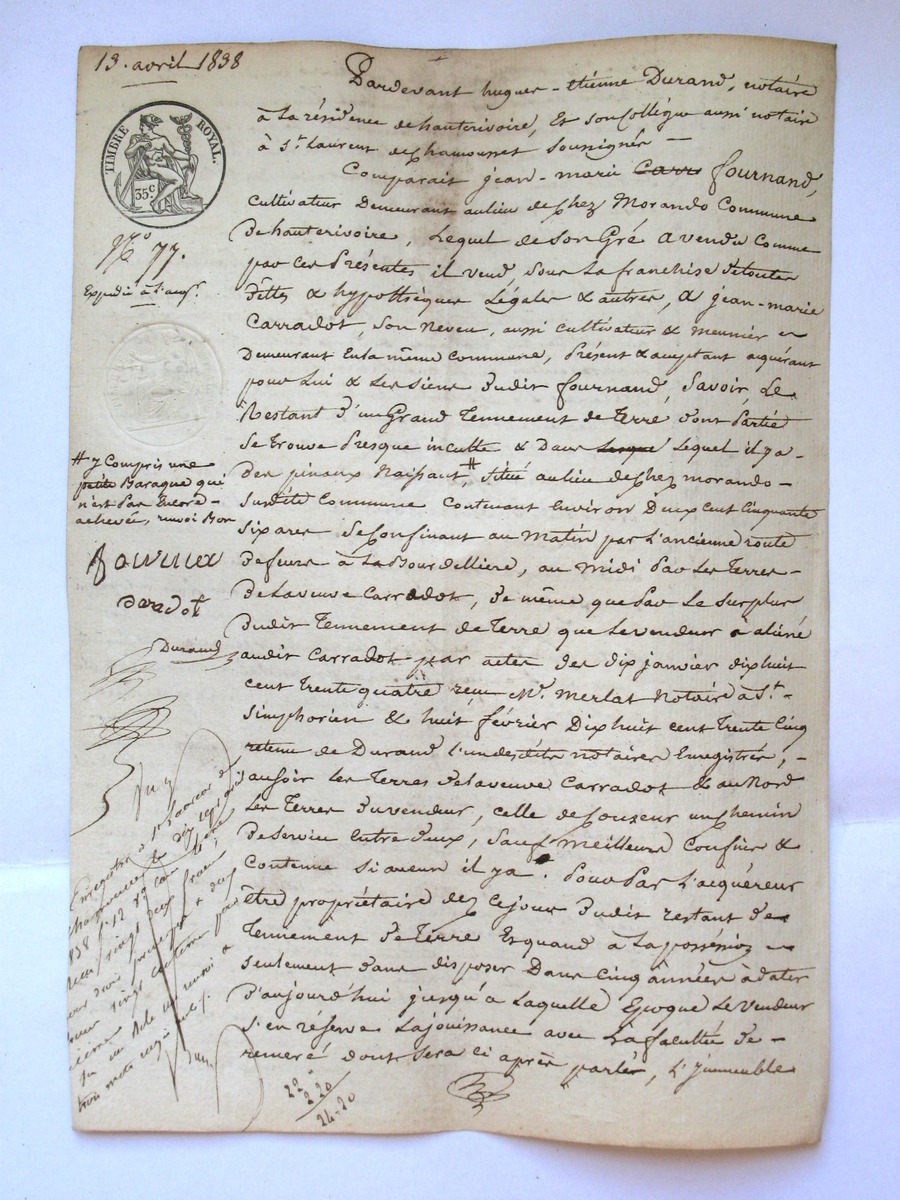 13. avril 1838
TIMBRE ROYAL.
35c
N° 77.
Expédié à l'acqr.
Pardevant hugues-étienne Durand, notaire
à la résidence de hauterivoire, et son Collègue aussi notaire
à St. Laurent de chamousset soussignés —
Comparait jean-marie Carra fournand,
cultivateur Demeurant au lieu de chez Morando Commune
De hauterivoire, Lequel de son Gré a vendu Comme
par ces Présentes il vend, sous la franchise de toutes
dettes & hypothèques Légales & autres, a jean-marie
Carradot, son Neveu, aussi cultivateur & meunier
Demeurant en la même Commune, Présent & acceptant acquérant
pour Lui & Les siens dudit fournand, Savoir, Le
Restant d'un Grand Tennement de Terre dont Partie
se trouve Presque inculte & Dans Lequel il y a
des pinaux Naissant #, situé au lieu de chez morando
susdite Commune Contenant Environ Deux Cent Cinquante
six ares se Confinant au Matin par l'ancienne route
de feurs à La Bourdellière, au midi Par Les Terres
De La veuve Carradot, de même que Par Le surplus
dudit Tennement de Terre que Le vendeur a aliéné
audit Carradot par actes des dix janvier dix huit
cent trente quatre reçu Me. Merlat Notaire à St.
Simphorien & huit février Dix huit cent Trente Cinq
retenu de Durand l'un desdits notaires Enregistrés,
au soir Les Terres de La veuve Carradot & au Nord
Les Terres du vendeur, celle de Couzeur un chemin
De service Entre deux, Sauf Meilleurs Confins &
Contenue si aucun il y a. Pour Par L'acquéreur
être propriétaire dez Ce jour dudit restant de
Tennement de Terre Et quand à La posséssion
seulement d'ans disposer Dans Cinq années à dater
d'aujourd'hui jusqu'à Laquelle Epoque Le vendeur
s'en réserve La jouissance avec La faculté de
remeré dont sera ci après parlé, L'jmmeuble
# y Compris une
petite Baraque qui
n'est Pas Encore
achevée, renvoi Bon
daradot
Durand
Enregistré à St Laurent de
chamousset le dix sept avril
22 "
2 20
24-20